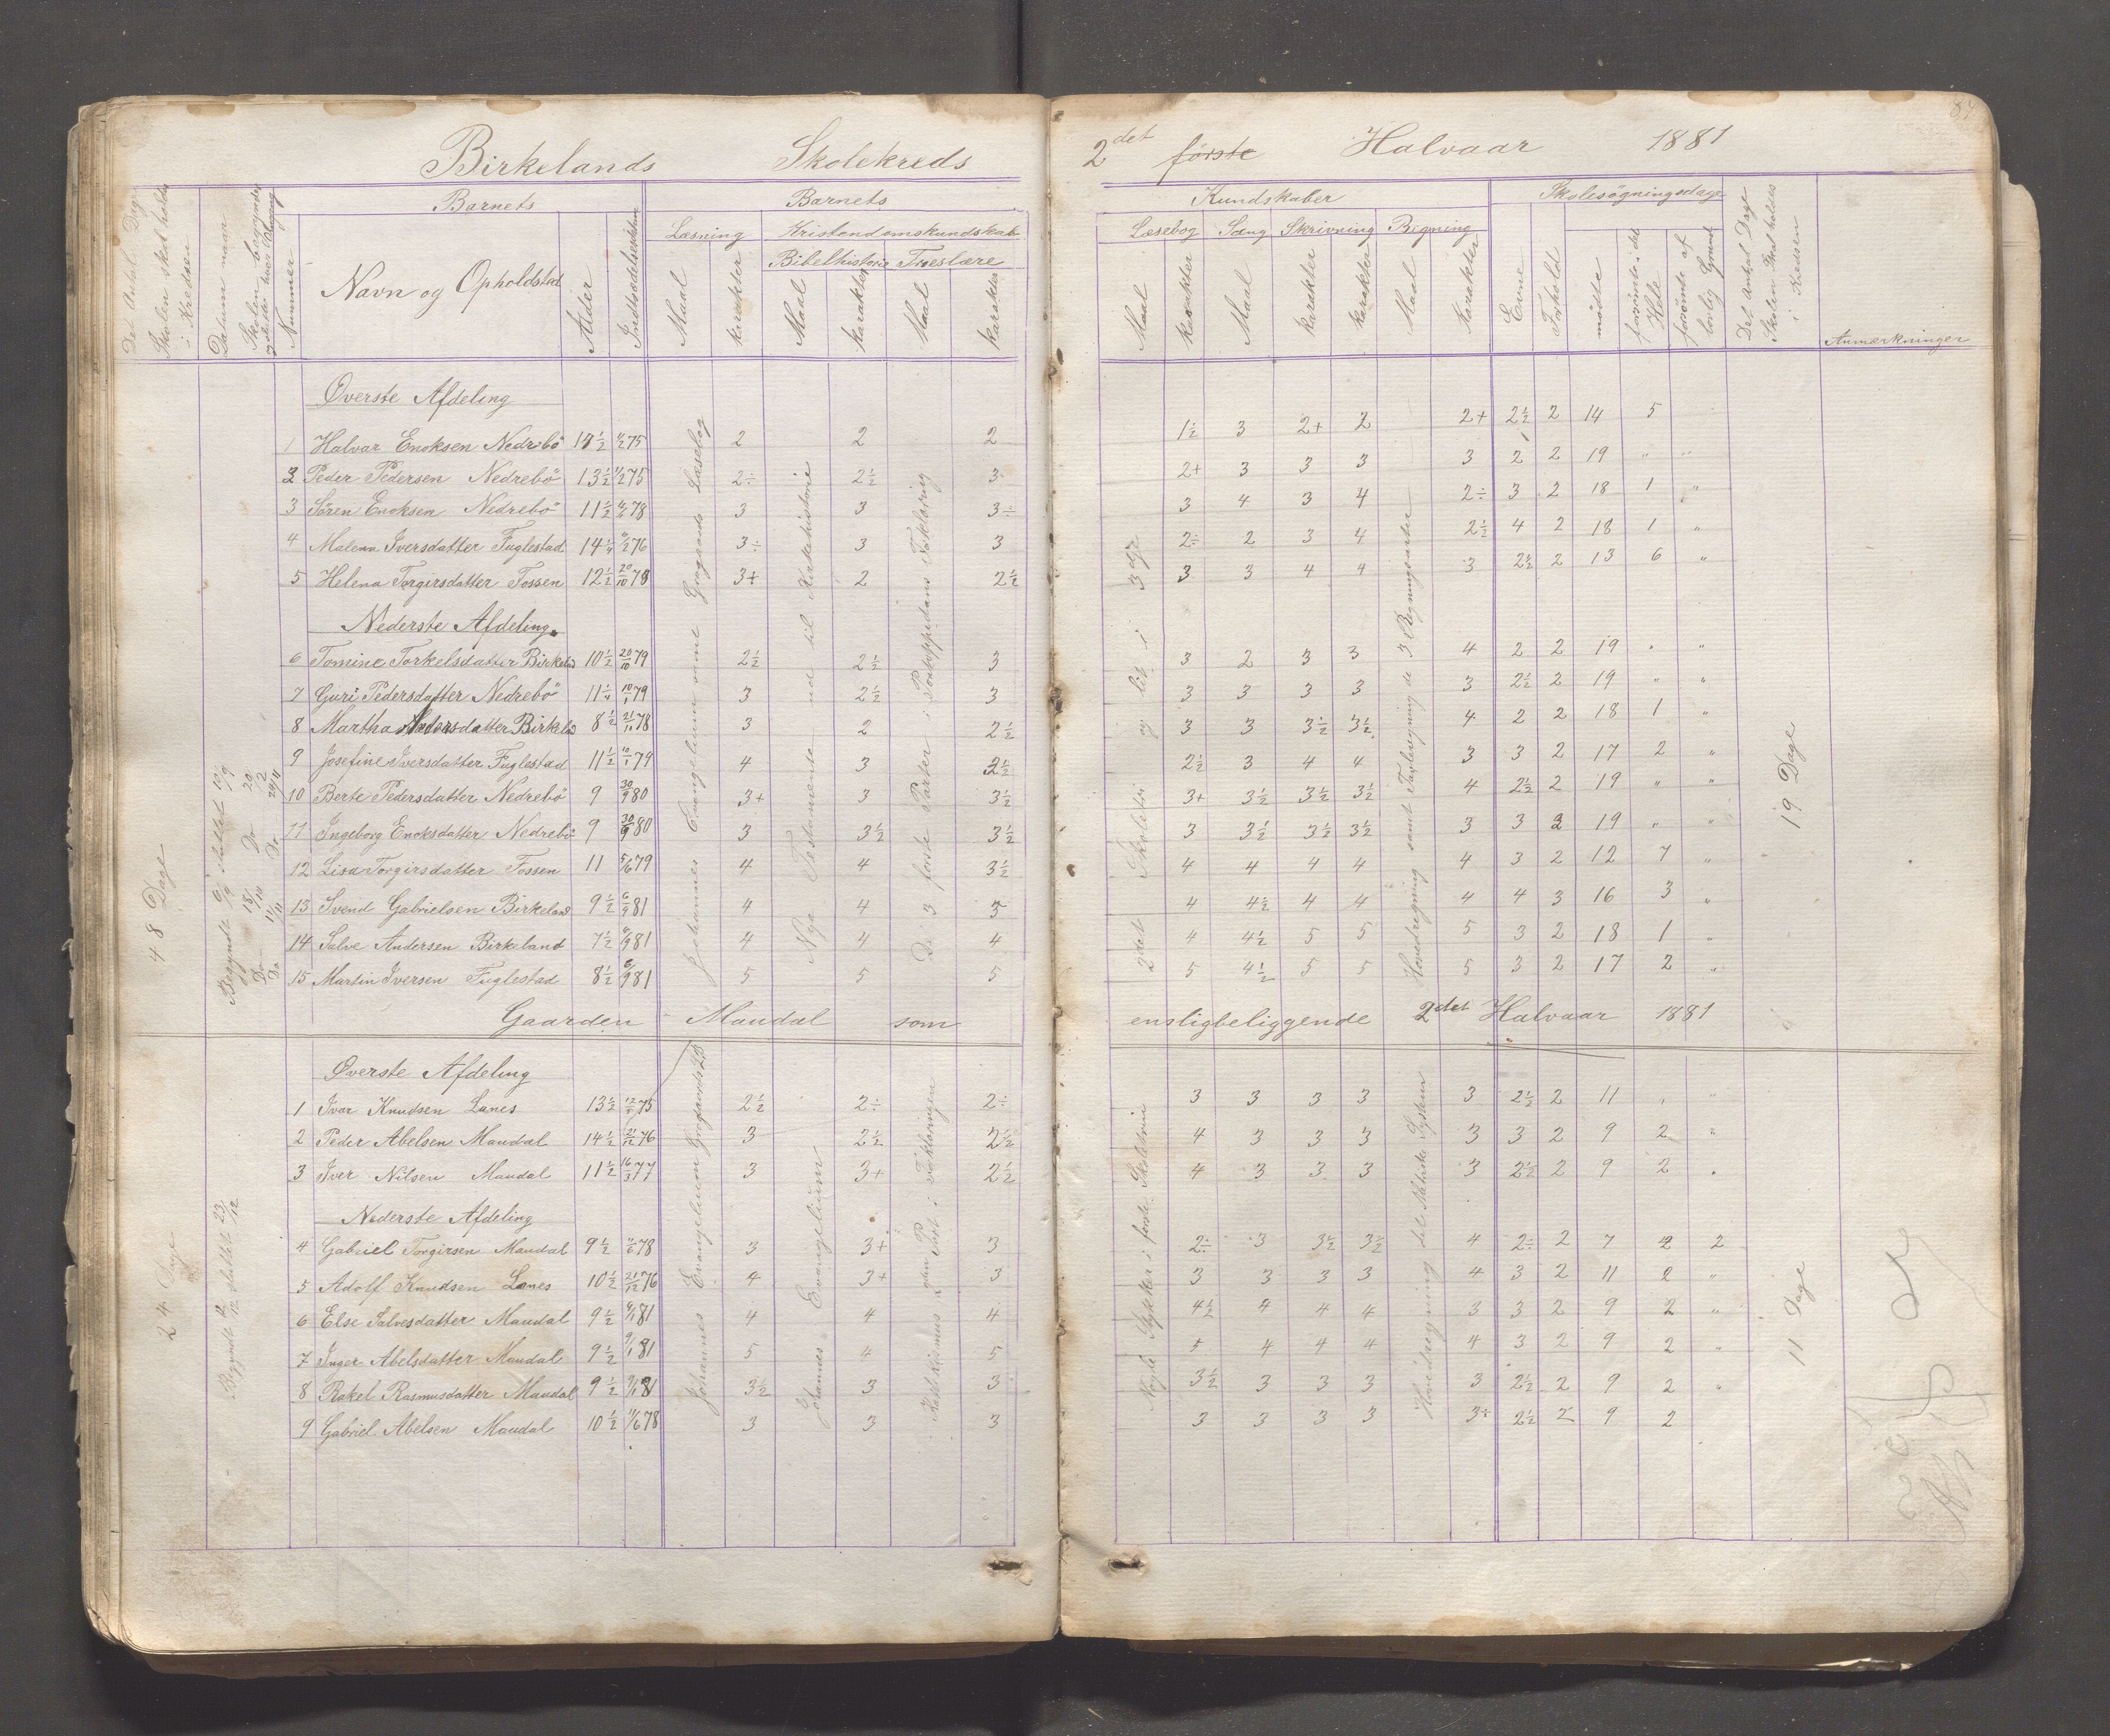 Birkelands Skolekreds
2det første Halvaar 1881
87
Det Antal Dage Skolen skal holdes i Kredsen
Datum naar Skolen begynder og slutter hver Omgang
Nummer
Barnets
Navn og Opholdsted
Alder
Indtrædelsesdatum
Barnets
Læsning
Kristendomskundskab
Bibelhistorie Troeslære
Maal
Karakter
Maal
Karakter
Maal
Karakter
Kundskaber
Læsebog Sang Skrivning Regning
Maal
Karakter
Maal
Karakter
Karakter
Maal
Karakter
Skolesøgningsdage
Evne
Forhold
mødte
forsømte i det Hele
forsømte af lovlig Grund
Det Antal Dage Skolen skal holdes i Kredsen
Anmærkninger
Øverste Afdeling
1 Halvar Enoksen Nedrebö 2 2 2 1½ 3 2+ 2 2+ 2½ 2 14 5
2 Peder Pedersen Nedrebö 13½ 2÷ 2½ 3 2+ 3 3 3 3 2 2 19 " "
3 Sören Enoksen Nedrebö 11½ 3 3 3÷ 3 4 3 4 2÷ 3 2 18 1 "
4 Malena Iversdatter Fuglestad 14¼ 3÷ 3 3 2÷ 2 3 4 2½ 4 2 18 1 "
5 Helena Torgirsdatter Fossen 12½ 20/10 78 3+ 2 2½ 3 3 4 4 3 2½ 2 13 6 "
Nederste Afdeling
6 Tomine Torkelsdatter Birkeld 10½ 20/10 79 2½ 2½ 3 3 2 3 3 4 2 2 19 " "
7 Guri Pedersdatter Nedrebö 11¼ 10/1 79 3 2½ 3 3 3 3 3 3 2½ 2 19 " "
8 Martha Andersdatter Birkeld 8½ 3 2 2½ 3 3 3½ 3½ 4 2 2 18 1 "
9 Josefine Iversdatter Fuglestad 11½ 10/1 79 4 3 2½ 2½ 3 4 4 3 3 2 17 2 "
10 Berte Pedersdatter Nedrebö 9 30/9 80 3+ 3 3½ 3+ 3½ 3½ 3½ 4 2½ 2 19 " "
11 Ingeborg Enoksdatter Nedrebö 9 30/9 80 3 3½ 3½ 3 3½ 3½ 3½ 3 3 2 19 " "
12 Lisa Torgirsdatter Fossen 11 5/6 79 4 4 3½ 4 4 4 4 4 3 2 12 7 "
13 Svend Gabrielsen Birkeland 9½ 6/9 81 4 4 3 4 4½ 4 4 4 4 3 16 3 "
14 Salve Andersen Birkeland 7½ 6/9 81 4 4 4 4 4½ 5 5 5 3 2 18 1 "
15 Martin Iversen Fuglestad 8½ 6/9 81 5 5 5 5 4½ 5 5 5 3 2 17 2 "
48 Dage
Begyndt 6/9 sluttet 10/9
Do 18/10 Do 20/
Johannes Evangelium samt Læsebog
Nye Testamente ud til Kirkehistorie
De 3 første Parter i Pontoppidans Forklaring
2det Skoletrin og lidt i 3die
Hovedregning samt Tavleregning de 3 Regningsarter
19 Dage
Gaarden Maudal som ensligbeliggende 2det Halvaar 1881
Øverste Afdeling
1 Ivar Knudsen Lanes 13½ 2½ 2÷ 2÷ 3 3 3 3 3 2½ 2 11 , "
2 Peder Abelsen Maudal 14½ 21/12 76 3 2½ 2½ 4 3 3 3 3 3 2 9 2 "
3 Iver Nilsen Maudal 11½ 16/3 77 3 3+ 2½ 4 3 3 3 3 2½ 2 9 2 "
Nederste Afdeling
4 Gabriel Torgirsen Maudal 9½ 11/6 78 3 3+ 3 2÷ 3 3½ 3½ 4 2÷ 2 7 2 2
5 Adolf Knudsen Lanes 10½ 21/12 76 4 3+ 3 3 3 3 3 4 3 2 11 "
6 Else Salvesdatter Maudal 9½ 9/1 81 4 4 4 4½ 4 4 4 3 3 2 9 2 "
7 Inger Abelsdatter Maudal 9½ 9/1 81 5 4 5 5 4 4 4 4 3 2 9 2 "
8 Rakel Rasmusdatter Maudal 9½ 9/1 81 3½ 3 3 3½ 3 3 3 3 2½ 2 9 2 "
9 Gabriel Abelsen Maudal 10½ 11/6 78 3 3 3 3 3 3 3 3+ 2½ 2 9 2
24 Dage
Begyndt 12/12 sluttet 23/12
Johannes Evangelium
Johannes Evangelium
Katekismus 2den Part i Forklaringen
Nogle Stykker i første Skoletrin
Hovedregning det System
11 Dage